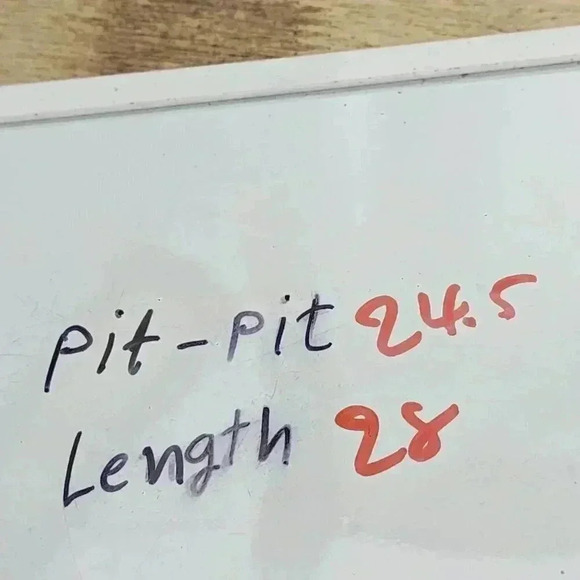 pit-pit 24.5
Length 28